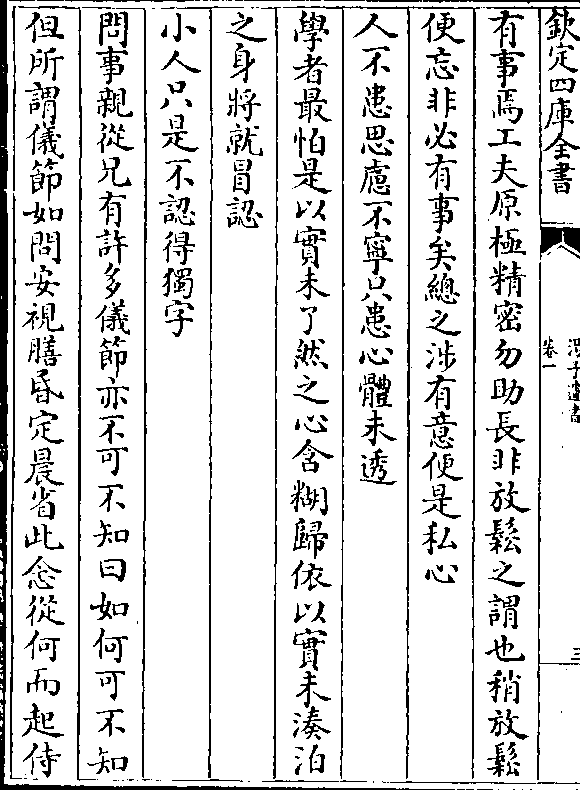 欽定四庫全書
卷一
三
有事焉工夫原極精密勿助長非放鬆之謂也稍放鬆
便忘非必有事矣總之涉有意便是私心
人不患思慮不寧只患心體未透
學者最怕是以實未了然之心含糊歸依以實未湊泊
之身將就冒認
小人只是不認得獨字
問事親從兄有許多儀節亦不可不知曰如何可不知
但所謂儀節如問安視膳昏定晨省此念從何而起侍